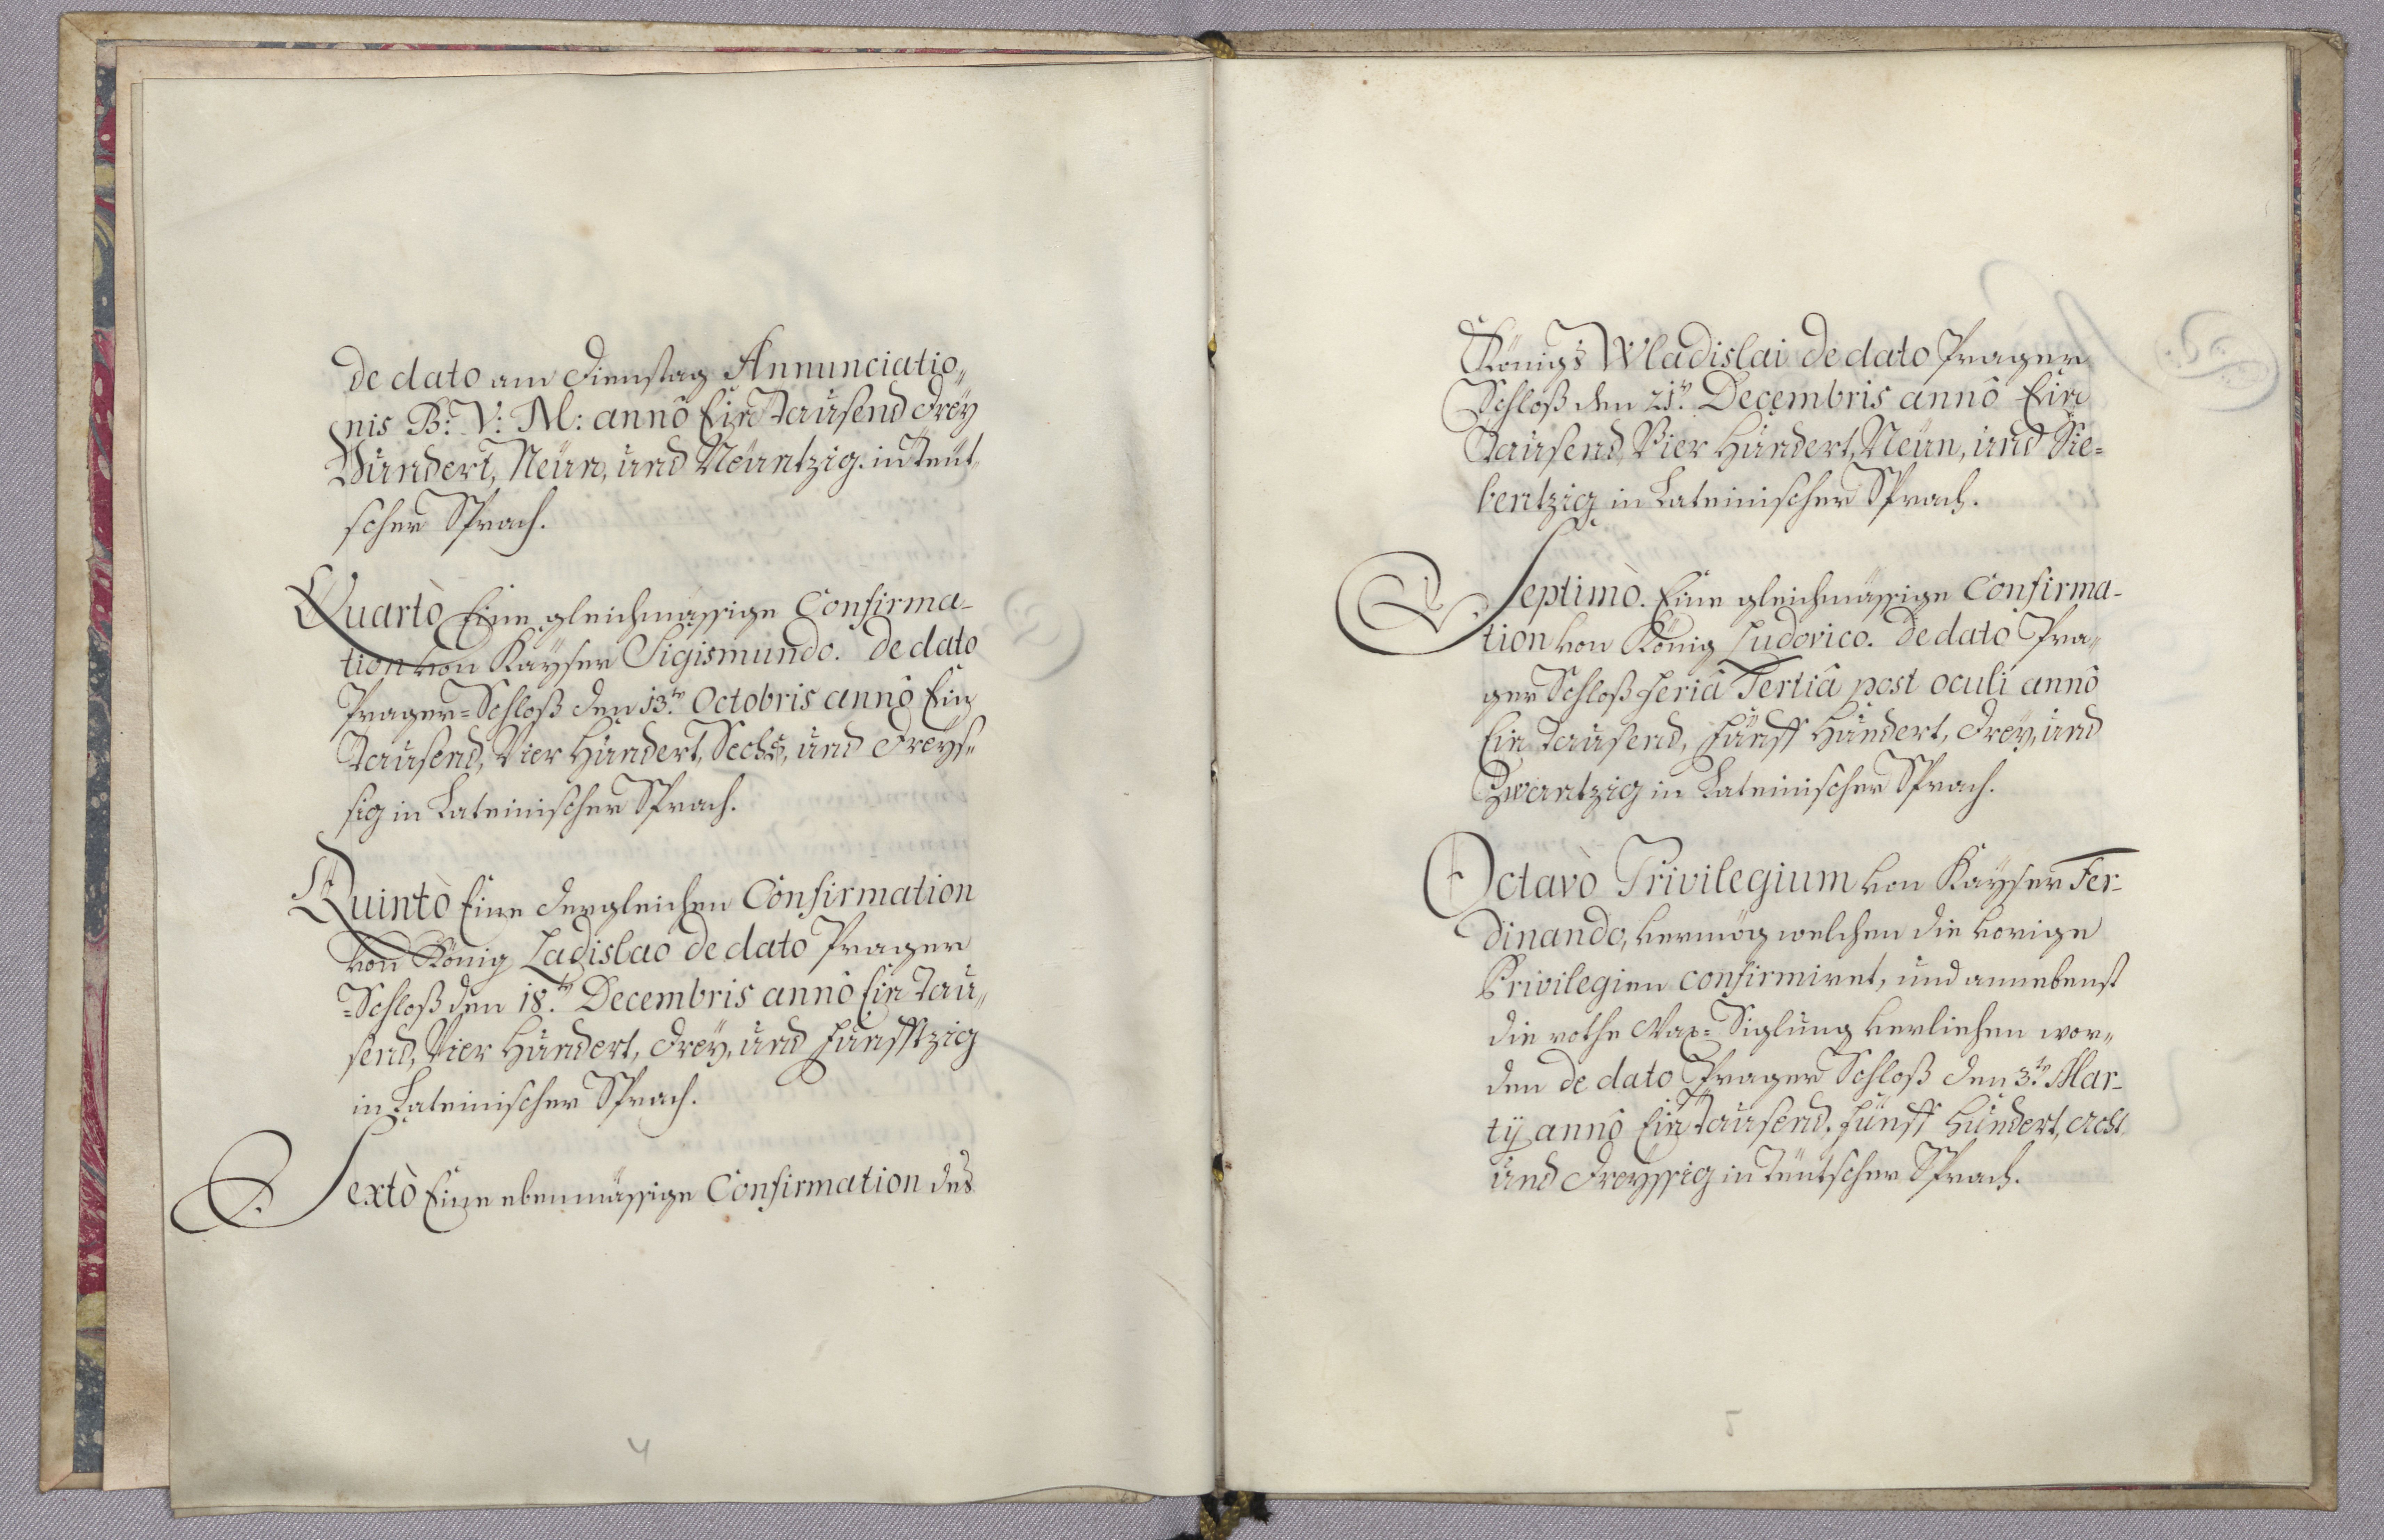 de dato am Dienstag Annunciatio„
nis B: V: M: annô Ein Tausend Drey
Hundert, Neun, und Neuntzig. in Teüt„
scher Sprach.
Quartò Eine gleichmässige Confirma-
tion von Kaÿser Sigismundo. de dato
Prager=Schloß den 13.ten Octobris annô Ein
Tausend, Vier Hundert, Sechs, und Dreys„
sig in Lateinischer Sprach.
Quintò Eine dergleichen Confirmation
von König Ladislao de dato Prager
=Schloß den 18.ten Decembris annô Ein Tau„
send, Vier Hundert, Drey, und Funfftzig
in Lateinischer Sprach.
Sextò Eine ebenmässige Confirmation des
4
Königs Wladislai de dato Prager
Schloß den 21.ten Decembris annô Ein
Tausend, Vier Hundert, Neun, und Sie=
bentzig in Lateinischer Sprach.
Septimò. Eine gleichmässige Confirma-
tion von König Ludovico. de dato Pra„
ger Schloß feriâ Tertiâ post oculi annô
Ein Tausend, Fünff Hundert, Drey, und
Zwantzig in Lateinischer Sprach.
Octavò Privilegium von Kaÿser Fer-
dinando, vermög welchen die vorige
Privilegien confirmiret, und annebenst
die rothe Wax=Siglung verliehen wor„
den de dato Prager Schloß den 3.ten Mar-
tij annô Ein Tausend, Fünff Hundert, Acht
und Dreyssig in Teutscher Sprach.
5